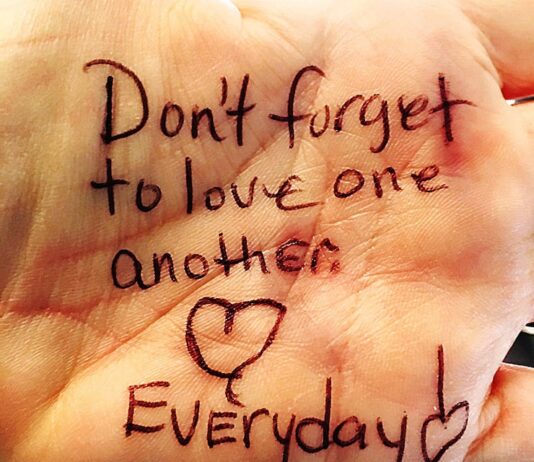 Don't forget
to love one
another.
Everyday